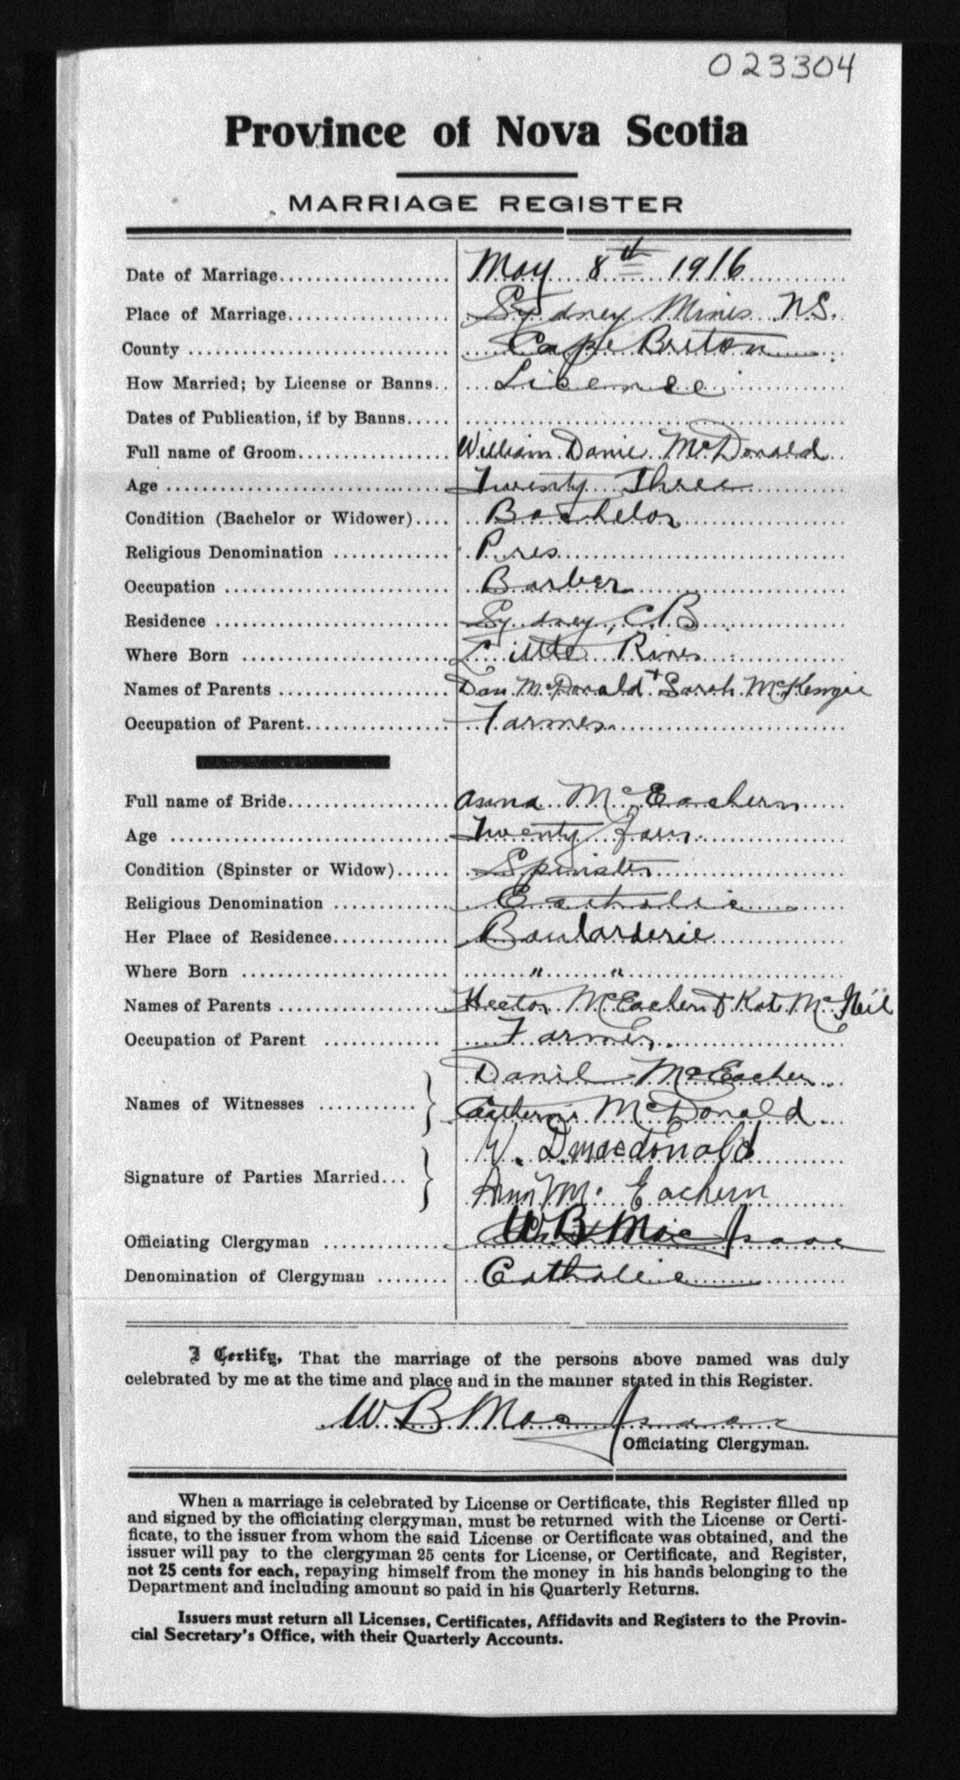 023304
Province of Nova Scotia
MARRIAGE REGISTER
Date of Marriage May 8th 1916
Place of Marriage Sydney Mines N.S.
County Cape Breton
How Married; by License or Banns Licence
Dates of Publication, if by Banns
Full name of Groom William Daniel McDonald
Age Twenty Three
Condition (Bachelor or Widower) Bachelor
Religious Denomination Pres
Occupation Barber
Residence Sydney, C.B
Where Born Little
Names of Parents Dan McDonald + Sarah McKenzie
Occupation of Parent Farmer
Full name of Bride Anna McEachern
Age Twenty four
Condition (Spinster or Widow) Spinster
Religious Denomination Catholic
Her Place of Residence Boularderie
Where Born " "
Names of Parents Hector McEachern & Kat McNeil
Occupation of Parent Farmer
Daniel McEachen
Names of Witnesses
Catherine McDonald
W. D. macdonald
Signature of Parties Married
Ann Mc Eachern
Officiating Clergyman W B Mac Isaac
Denomination of Clergyman Catholic
I Certify, That the marriage of the persons above named was duly
celebrated by me at the time and place and in the manner stated in this Register.
W B Mac Isaac
Officiating Clergyman.
When a marriage is celebrated by License or Certificate, this Register filled up
and signed by the officiating clergyman, must be returned with the License or Certi-
ficate, to the issuer from whom the said License or Certificate was obtained, and the
issuer will pay to the clergyman 25 cents for License, or Certificate, and Register,
not 25 cents for each, repaying himself from the money in his hands belonging to the
Department and including amount so paid in his Quarterly Returns.
Issuers must return all Licenses, Certificates, Affidavits and Registers to the Provin-
cial Secretary's Office, with their Quarterly Accounts.